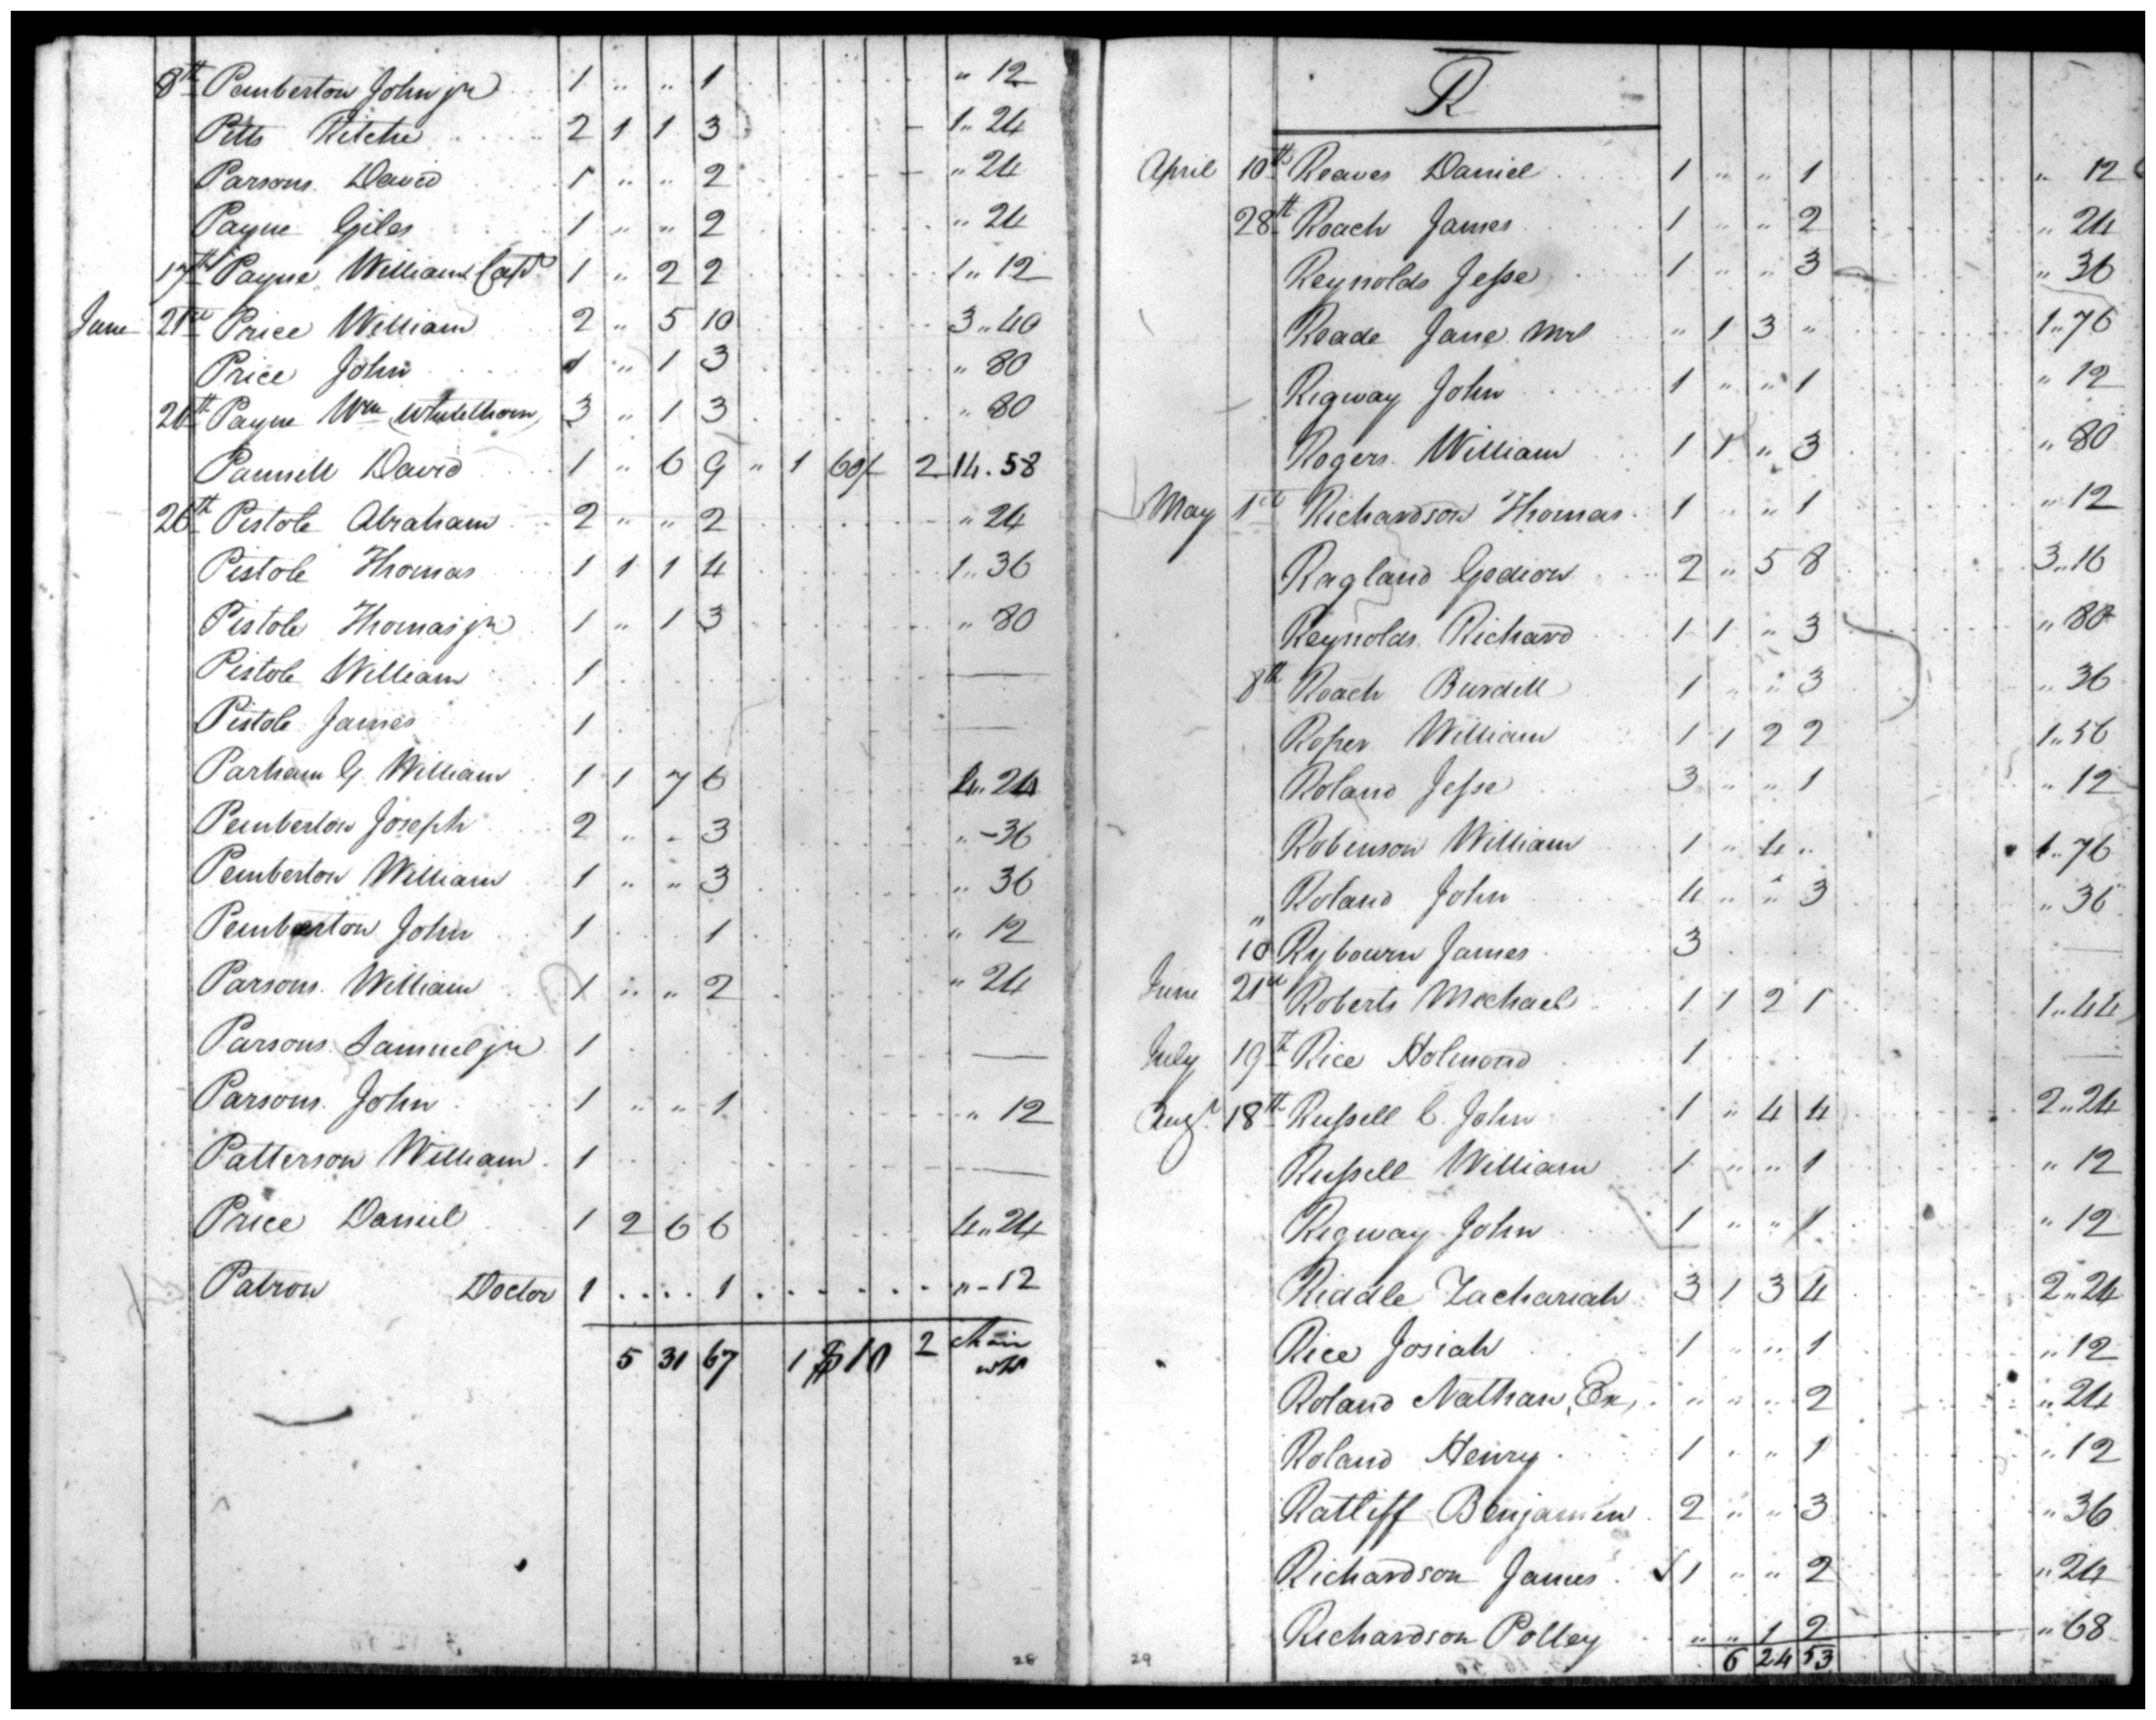 8th Pemberton John jr 1 " " 1 " 12
Pitts Ritche 2 1 1 3 1" 24
Parsons David 1 " " 2 " 24
Payne Giles 1 " " 2 " 24
17th Payne William Capt 1 " 2 2 1" 12
June 21st Price William 2 " 5 10 3" 40
Price John 1 " 1 3 " 80
Payne Wm 3 " 1 3 " 80
Pannill David 1 " 6 9 " 1 60/ 2 14.58
26th Pistole Abraham 2 " " 2 " 24
Pistole Thomas 1 1 1 4 1" 36
Pistole Thomas jr 1 " 1 3 " 80
Pistole William 1 —
Pistole James 1 —
Parham G. William 1 1 7 6 4" 24
Pemberton Joseph 2 " - 3 " -36
Pemberton William 1 " " 3 " 36
Pemberton John 1 1 " 12
Parsons William 1 " " 2 " 24
Parsons Samuel jr 1 —
Parsons John 1 " " 1 " 12
Patterson William 1 —
Price Daniel 1 2 6 6 4" 24
Patron Doctor 1 . . . . 1 . . . . . . "-12
5 31 67 1 $10 2
28
R
April 10th Reaves Daniel 1 " " 1 " 12
28th Roach James 1 " " 2 " 24
Reynolds Jesse 1 " " 3 " 36
Reade Jane Mrs " 1 3 " 1" 76
Rigway John 1 " " 1 " 12
Rogers William 1 1 " 3 " 80
May 1st Richardson Thomas 1 " " 1 " 12
Ragland Gedion 2 " 5 8 3" 16
Reynolds Richard 1 1 " 3 " 80
8th Roach Burditt 1 " " 3 " 36
Roper William 1 1 2 2 1" 56
Roland Jesse 3 " " 1 " 12
Robinson William 1 " 4 " 1" 76
" Roland John 4 " " 3 " 36
10 Rybourn James 3 —
June 21st Roberts Michael 1 1 2 1 1" 44
July 19th Rice Holmond 1 —
Augt 18th Russell C. John 1 " 4 4 2" 24
Russell William 1 " " 1 " 12
Rigway John 1 " " 1 " 12
Riddle Zachariah 3 1 3 4 2" 24
Rice Josiah 1 " " 1 " 12
Roland Nathan, Ex, " " " 2 " 24
Roland Henry 1 " " 1 " 12
Ratliff Benjamin 2 " " 3 " 36
Richardson James 1 " " 2 " 24
Richardson Polley " " 1 2 " 68
6 24 53
29